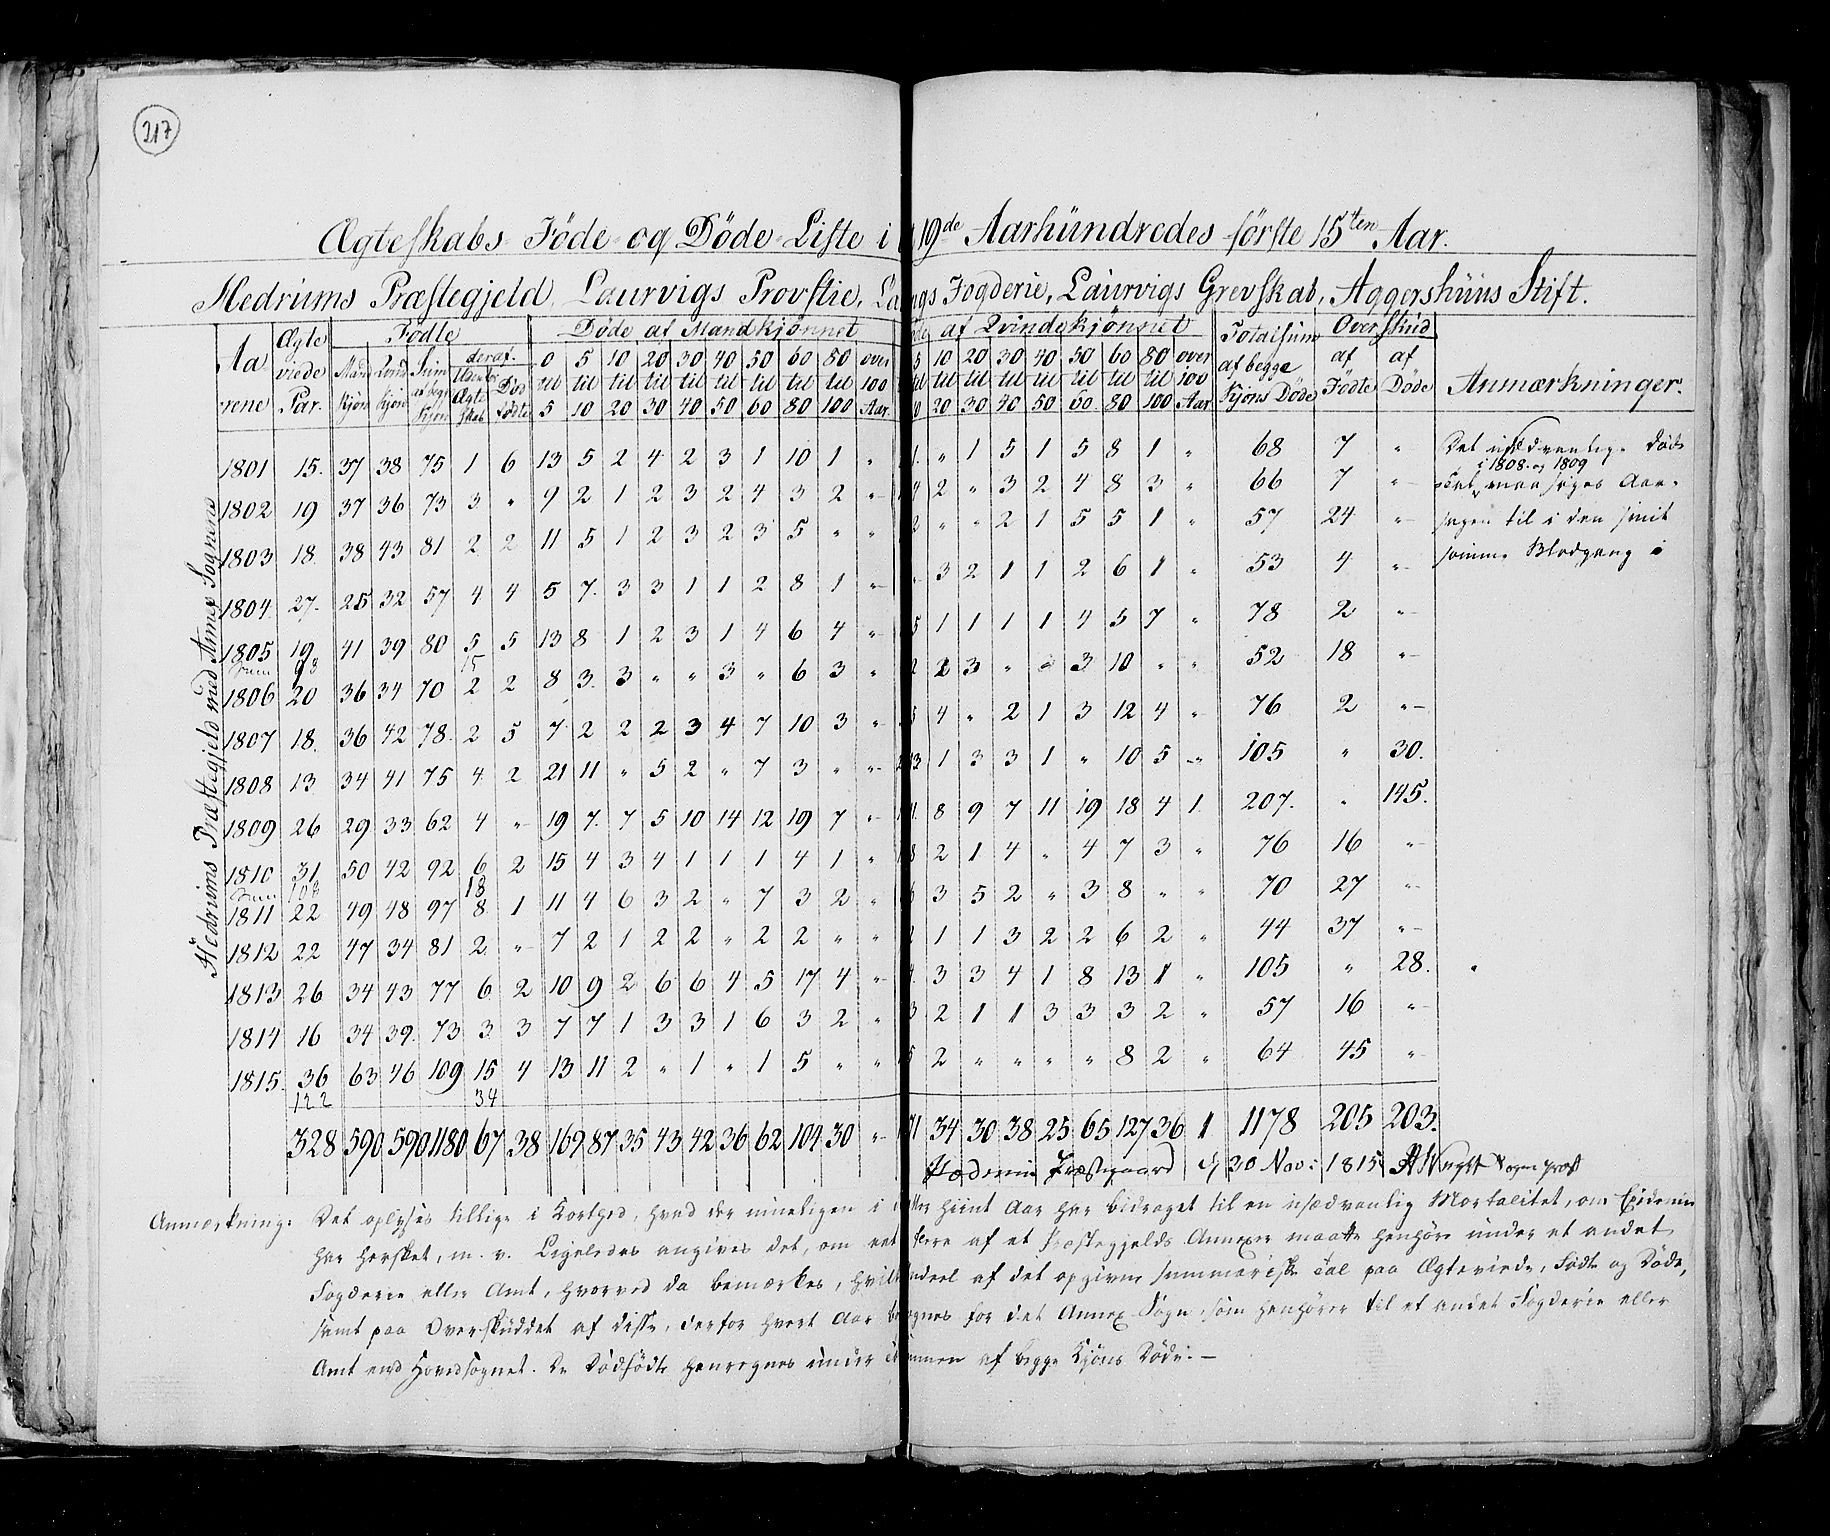 217
Ægteskabs- Föde- og Döde-Liste i 19de Aarhundredes förste 15ten Aar.
Hedrums Præstegjeld, Laurvigs Provstie, Fogderie, Laurvigs Grevskab, Aggershuus Stift.
Hedrums Præstegjeld med Annex Sognene
Aarene | Ægteviede Par. | Födte | Döde af Mandkjönnet | af Qvindekjönnet | Totalsum af begge Kjöns Döde | Overskud | Anmærkninger.
Mand Kjön | Qvind Kjön | Sum af begge Kjøn | deraf. Udenfor Ægteskab | Död födte | 0 til 5 | 5 til 10 | 10 til 20 | 20 til 30 | 30 til 40 | 40 til 50 | 50 til 60 | 60 til 80 | 80 til 100 | over 100 Aar. | 5 til 10 | 10 til 20 | 20 til 30 | 30 til 40 | 40 til 50 | 50 til 60 | 60 til 80 | 80 til 100 | over 100 Aar | af Födte | af Döde
1801 15. 37 38 75 1 6 13 5 2 4 2 3 1 10 1 " 1. " 1 5 1 5 8 1 " 68 7 " Det usædvanlige Döds
i 1808 og 1809
1802 19 37 36 73 3 " 9 2 1 2 3 2 4 3 2 " 4 2 " 3 2 4 8 3 " 66 7 " Tal maa söges Aar-
1803 18. 38 43 81 2 2 11 5 1 2 3 2 3 5 " " 2 " " 2 1 5 5 1 " 57 24 " sagen til i den smit
1804 27. 25 32 57 4 4 5 7. 3 3 1 1 2 8 1 " " 3 2 1 1 2 6 1 " 53 4 " somme Blodgang
1805 19 41 39 80 5 5 13 8 1 2 3 1 4 6 4 " 5 1 1 1 1 4 5 7 " 78 2 "
Sum 98 15
1806 20 36 34 70 2 2 8 3. 3 " " 3 " 6 3 " 2 3 " 3 10 " " 52 18 "
1807 18. 36 42 78. 2 5 7 2 2 2 3 4 7 10 3 " 5 4 " 2 1 3 12 4 " 76 2 "
1808 13 34 41 75 4 2 21 11 " 5 2 " 7 3 " " 13 1 3 3 1 " 10 5 " 105 " 30.
1809 26 29 33 62 4 " 19 7. 7 5 10 14 12 19 7 " 8 9 7 11 19 18 4 1. 207. " 145.
1810 31 50 42 92 6 2 15 4 3 4 1 1 1 4 1 " 8 2 1 4 " 4 7 3 " 76 16 "
Sum 108 18
1811 22 49 48 97 8 1 11 4 6 3 2 " 7 3 2 " 3 5 2 " 3 8 " " 70 27 "
1812 22 47 34 81 2 " 7 2 1 2 2 " 2 2 " " 2 1 1 3 2 2 6 2 " 44 37 "
1813 26 34 43 77 6 2 10 9 2 6 6 4 5 17 4 " 3 3 4 1 8 13 1 " 105 " 28.
1814 16 34 39. 73 3 3 7 7 1 3 3 1 6 3 2 " 3 2 1 1 3 3 3 2 " 57 16 "
1815. 36 63 46 109 15 4 13 11 2 " 1 " 1 5 " " 5 2 " " " " 8 2 " 64 45 "
122 34
328 590 590 1180 67 38 169 87 35 43 42 36 62 104 30 " 71 34 30 38 25 65 127 36 1 1178 205 203.
Hedrum Præstegaard d 20 Nov: 1815 Sogne præst
Anmærkning: Det oplyses tillige i Korthed, hvad der mueligen i et eller hiint Aar har bidraget til en usædvanlig Mortalitet, om Epidemie
har hersket, m. v. Ligeledes angives det, om eet flere af et Præstegjelds Annexer maatte henhöre under et andet
Fogderie eller Amt, hvorved da bemærkes, hvilken deel af det opgivne summariske Tal paa Ægteviede, Födte og Döde,
samt paa Overskuddet af disse, derfor hvert Aar beregnes for det Annex-Sogn, som henhörer til et andet Fogderie eller
Amt end Hovedsognet. De Dödfödte henregnes under Summen af begge Kjöns Döde. —